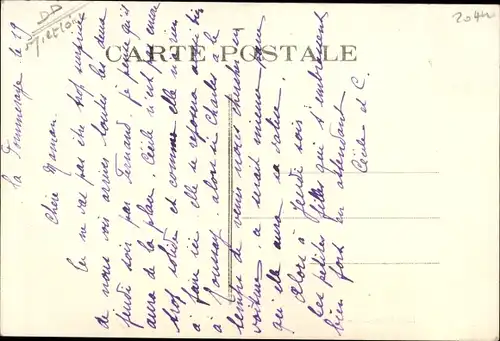 CARTE POSTALE
2044
La Pommeraye le 19
Chère Maman
Tu ne vas pas être trop surprise
de nous voir arriver toutes les deux
jeudi soir par Fernand. je pense qu'il
aura de la place. Cécile n'est pas encore
trop solide et comme elle n'a rien
à faire ici elle se reposera aussi bien
à Roussay. alors si Charles a le
temps de venir nous chercher en
voiture. ce serait mieux pour
qu'elle aura sa valise.
Alors à Jeudi soir
Les petites filles qui s'embrassent
bien fort en attendant
Cécile et C.